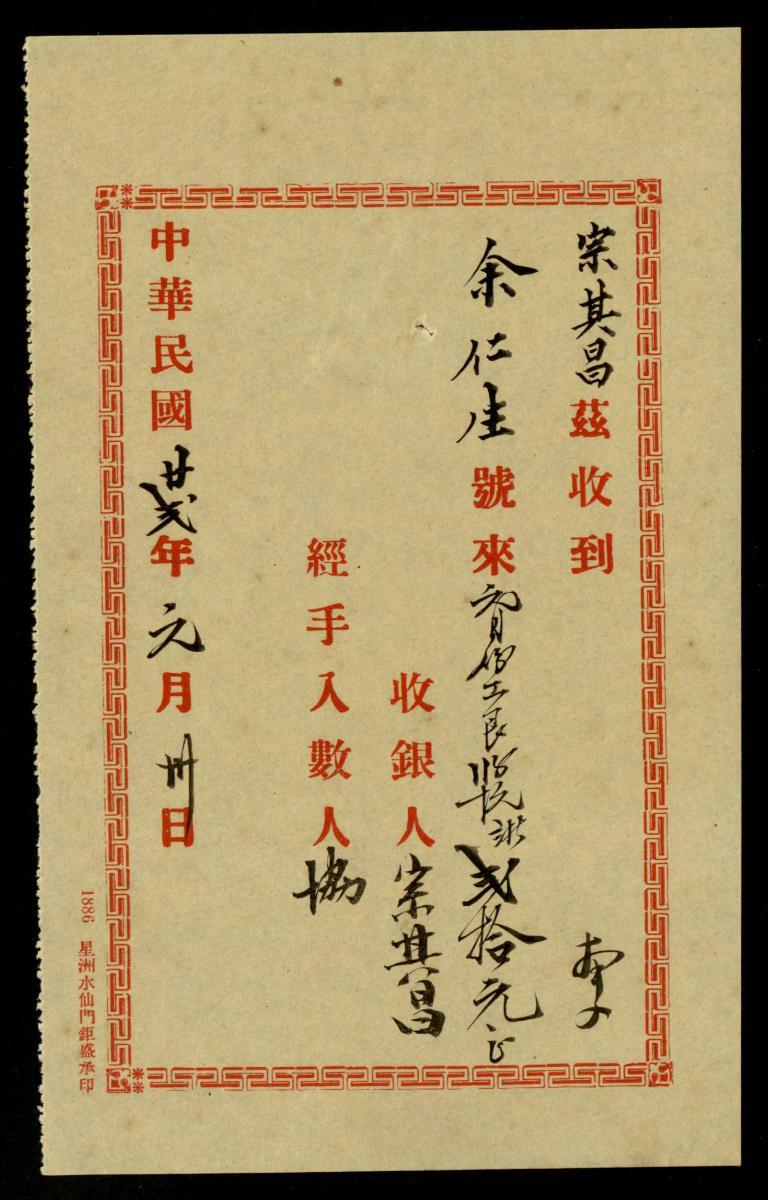 宗其昌茲收到
余仁生號來元月份工艮貳拾元正
收銀人宗其昌
經手入數人協
中華民國廿貳年元月卅日
1886 星洲水仙門鉅盛承印